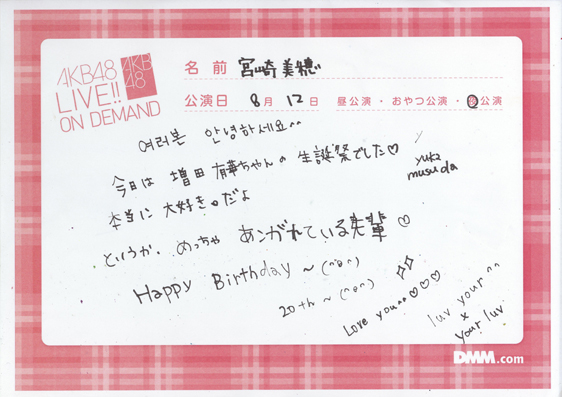 AKB48
LIVE!!
ON DEMAND
AKB
48
名 前 宮崎美穂
公演日 8月 12日 昼公演・おやつ公演・夜公演
여러분 안녕하세요^^
今日は 増田 有華ちゃんの 生誕祭でした♡
yuka
musuda
本当に 大好き。だよ
というか、めっちゃ あこがれている先輩♡
Happy Birthday ~(^o^)
20th ~(^o^)
Love you~♡♡♡
luv your ^^
x
your luv
DMM.com